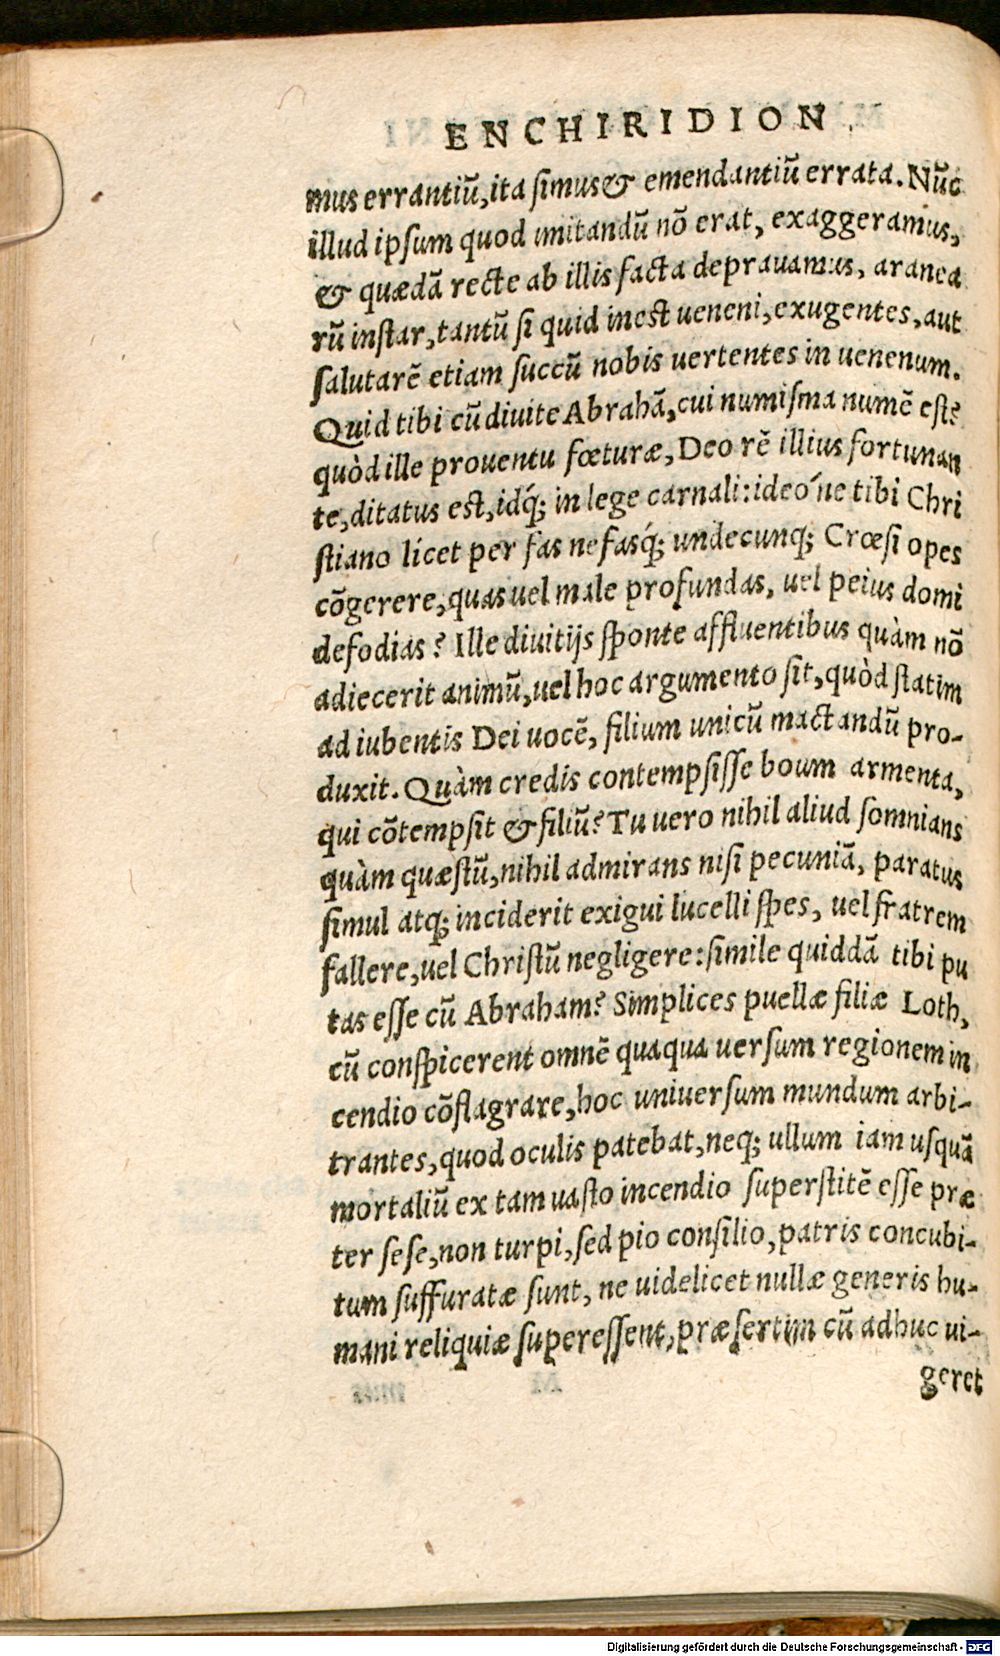 ENCHIRIDION
mus errantiũ, ita ſimus & emendantiũ errata. Nũc
illud ipſum quod imitandũ nõ erat, exaggeramus,
& quædã recte ab illis facta deprauamus, aranea
rũ inſtar, tantũ ſi quid inest ueneni, exugentes, aut
ſalutarẽ etiam ſuccũ nobis uertentes in uenenum.
Quid tibi cũ diuite Abrahã, cui numiſma numẽ eſt?
quòd ille prouentu fœturæ, Deo rẽ illius fortunan
te, ditatus est, idq́; in lege carnali: ideó ne tibi Chri
ſtiano licet per fas nefasq́; undecunq; Crœſi opes
cõgerere, quas uel male profundas, uel peius domi
defodias? Ille diuitijs ſponte affluentibus quàm nõ
adiecerit animũ, uel hoc argumento ſit, quòd ſtatim
ad iubentis Dei uocẽ, filium unicũ mactandũ pro-
duxit. Quàm credis contempſiſſe boum armenta,
qui cõtempſit & filiũ? Tu uero nihil aliud ſomnians
quàm quæſtũ, nihil admirans niſi pecuniã, paratus
ſimul atq; inciderit exigui lucelli ſpes, uel fratrem
fallere, uel Chriſtũ negligere: ſimile quiddã tibi pu
tas eſſe cũ Abraham? Simplices puellæ filiæ Loth,
cũ conſpicerent omnẽ quaqua uerſum regionem in
cendio cõflagrare, hoc uniuerſum mundum arbi-
trantes, quod oculis patebat, neq; ullum iam uſquã
mortaliũ ex tam uaſto incendio ſuperſtitẽ eſſe præ
ter ſeſe, non turpi, ſed pio conſilio, patris concubi-
tum ſuffuratæ ſunt, ne uidelicet nullæ generis hu-
mani reliquiæ ſupereſſent, præſertim cũ adhuc ui-
geret
Digitalisierung gefördert durch die Deutsche Forschungsgemeinschaft - DFG